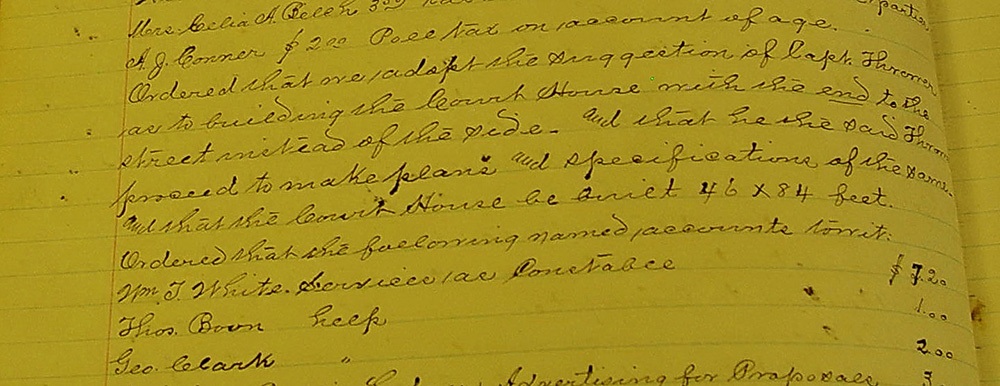 Mrs. Celia A. Belch 3.50
A. J. Conner $2.00 Poll tax on account of age.
Ordered that we adopt the suggestion of Capt. Thromer
as to building the Court House with the end to the
street instead of the side. and that he the said Throm
proceed to make plans and specifications of the same.
and that the Court House be built 46 X 84 feet.
Ordered that the following named accounts towit:
Wm T. White. Services as Constable $ 7.20
Thos. Bown help 1.00
Geo. Clark " 2.00
Advertising for Proposals 3